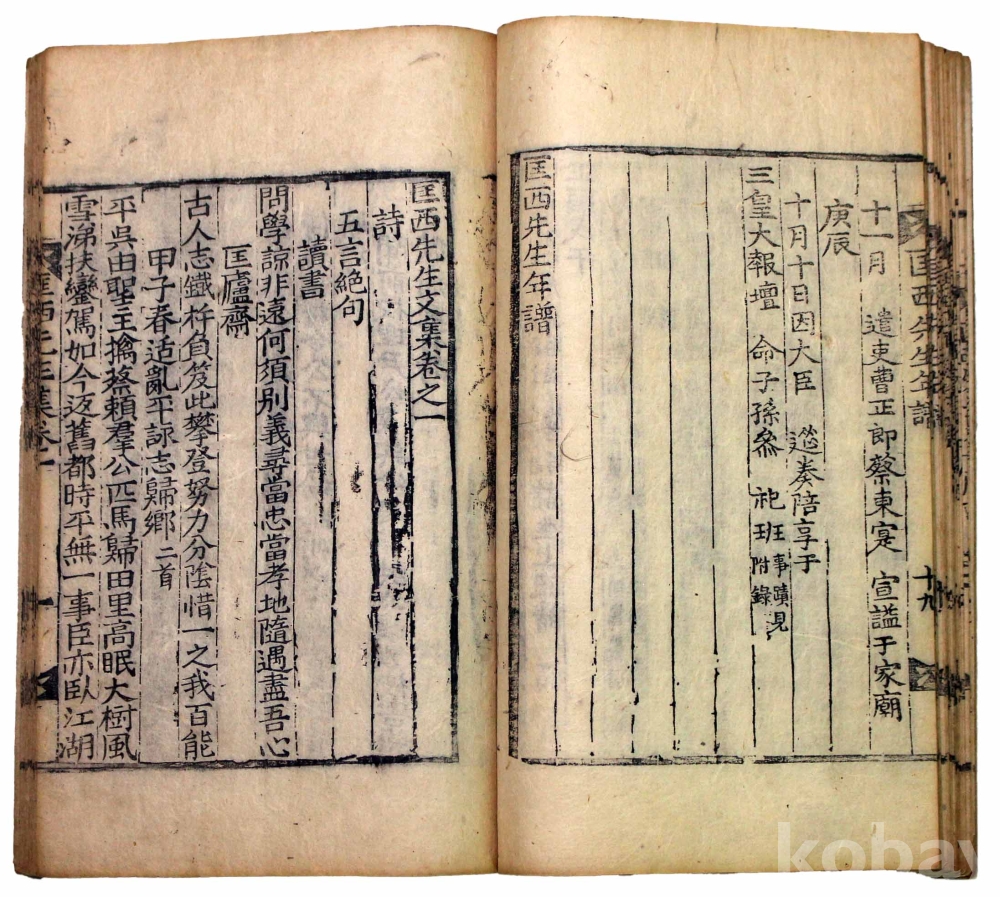 匡西先生年譜
十九
十一月 遣吏曹正郎蔡東寔 宣謚于家廟
庚辰
十月十日因大臣 筵奏陪享于
三皇大報壇 命子孫叅 祀班事蹟見附錄
匡西先生年譜
匡西先生文集卷之一
詩
五言絕句
讀書
問學諒非遠何須別義尋當忠當孝地隨遇盡吾心
匡廬齋
古人志鐵杵負笈此攀登努力分陰惜一之我百能
甲子春适亂平詠志歸鄉二首
平吳由聖主擒蔡賴羣公匹馬歸田里高眠大樹風
雪涕扶鑾駕如今返舊都時平無一事臣亦臥江湖
匡西先生集卷一
一
kobay